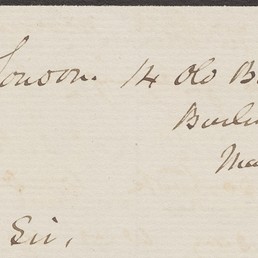 London. 14 Old B
Burl
Ma
Sir,